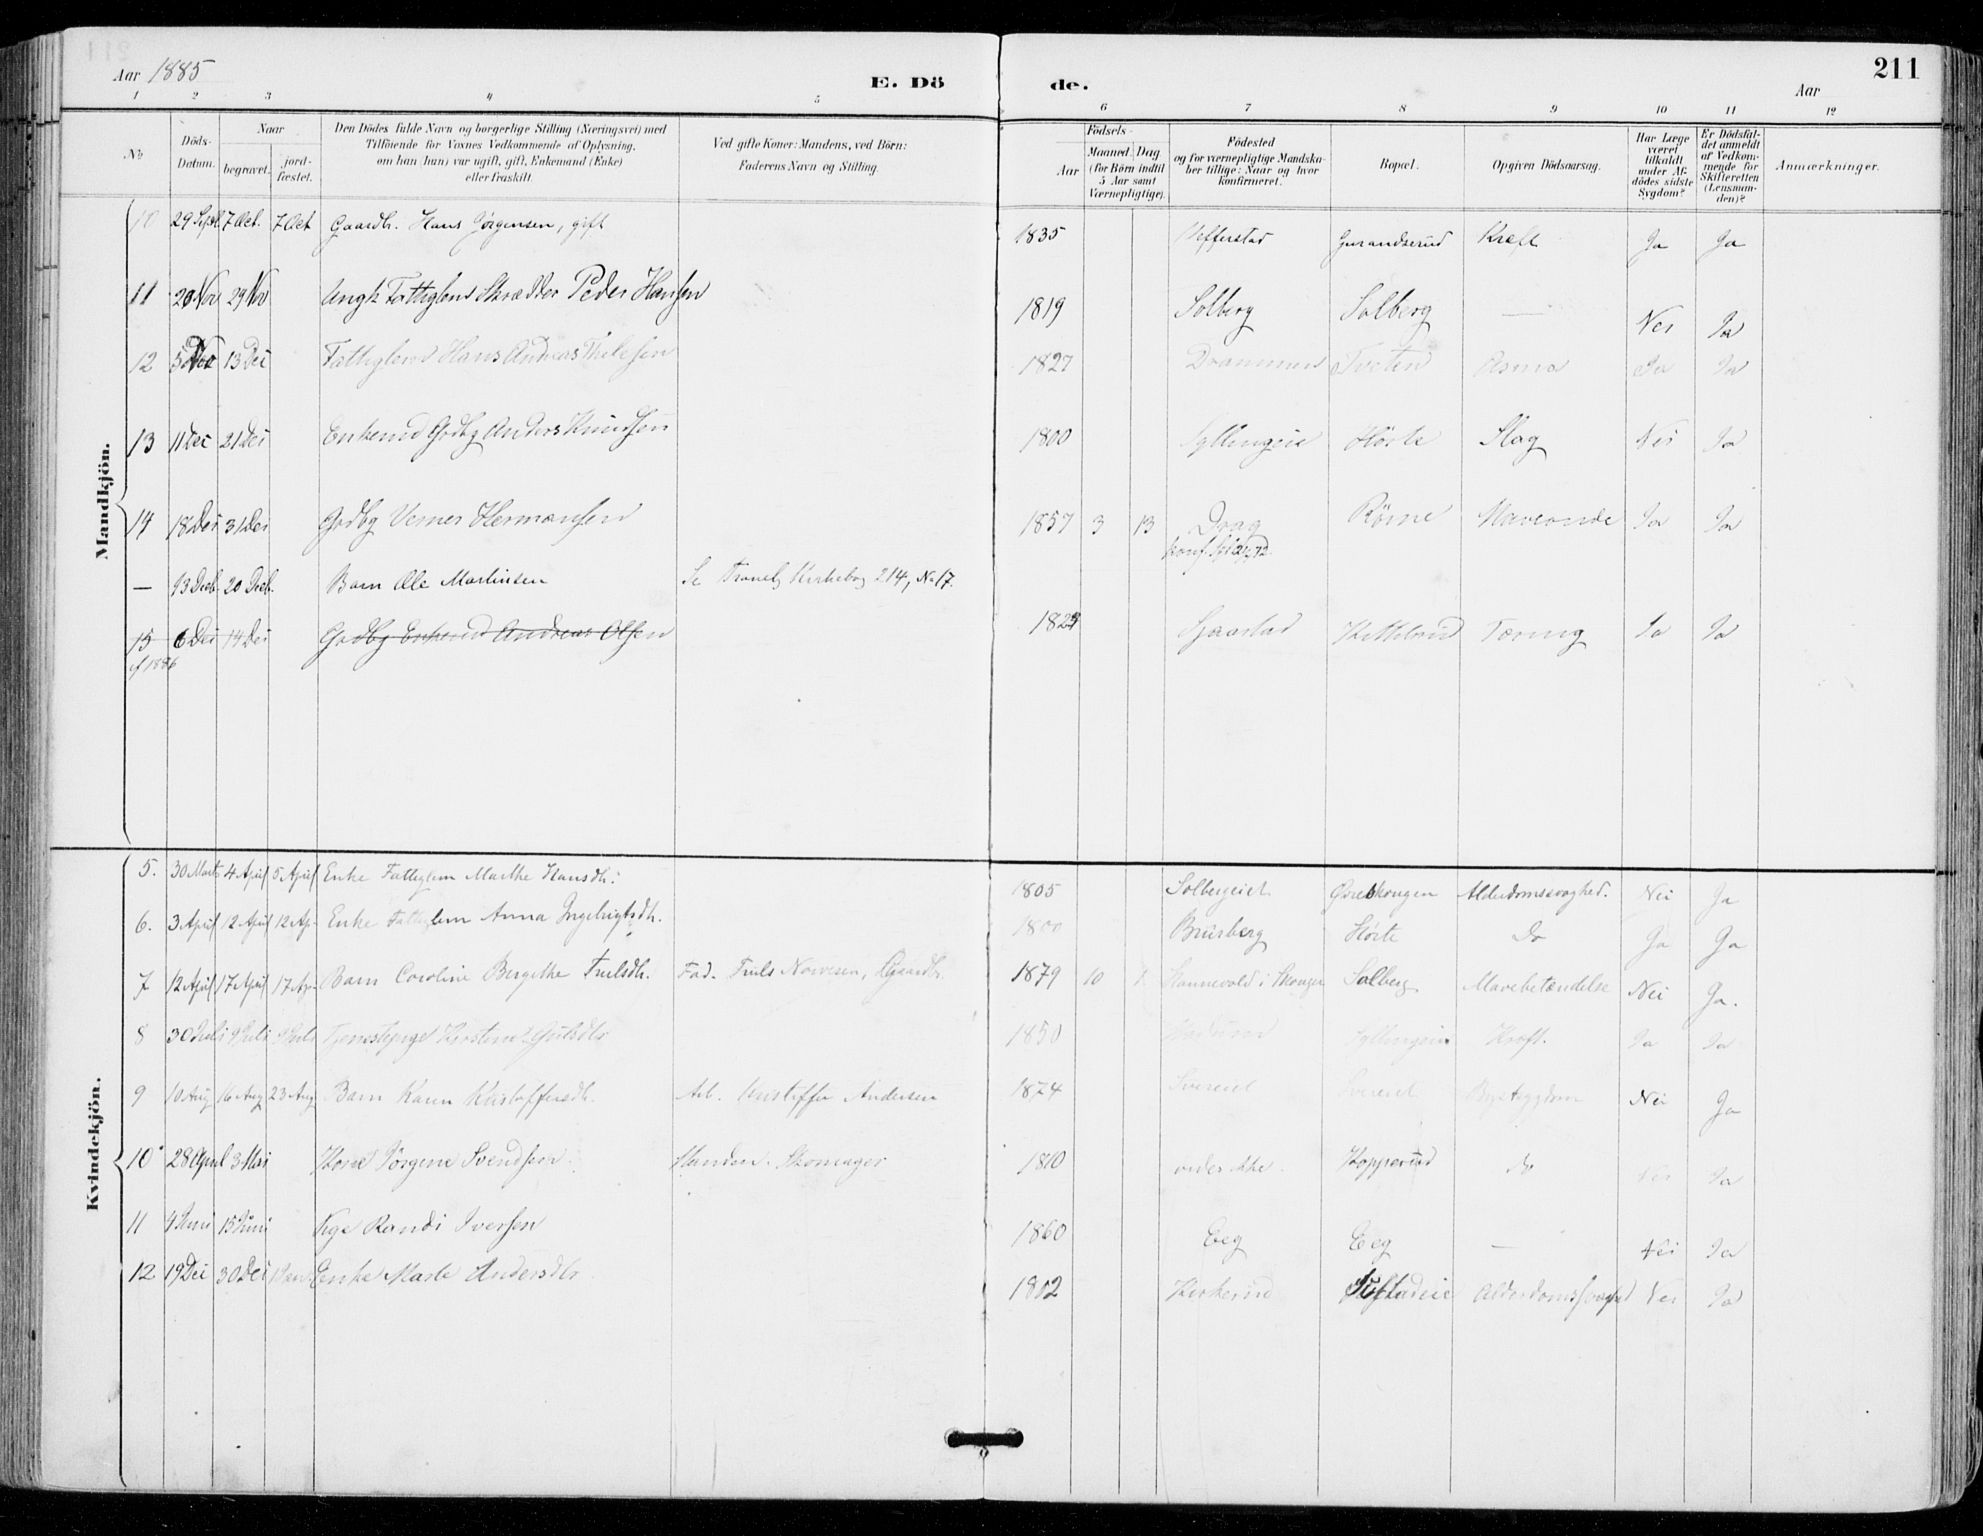 Aar 1885
E. Dö
de.
Aar
211
1 2 3 4 5 6 7 8 9 10 11 12
No
Döds-Datum.
Naar
begravet.
jord-fæstet.
Den Dödes fulde Navn og borgerlige Stilling (Næringsvei) med
Tilföiende for Voxnes Vedkommende af Oplysning,
om han (hun) var ugift, gift, Enkemand (Enke)
eller fraskilt.
Ved gifte Koner: Mandens, ved Börn:
Faderens Navn og Stilling.
Födsels-
Aar
Maaned. Dag
(for Børn indtil
5 Aar samt
Værnepligtige).
Födested
og for værnepligtige Mandska-
ber tillige: Naar og hvor
konfirmeret.
Bopæl.
Opgiven Dödsaarsag.
Har Læge
været
tilkaldt
under Af-
dödes sidste
Sygdom?
Er Dödsfal-
det anmeldt
af Vedkom-
mende for
Skifteretten
(Lensman-
den)?
Anmærkninger.
Mandkjön.
10 29 Sept. 7 Oct. 7 Oct Gaardbr. Hans Jørgensen, gift 1835 Kræft Ja Ja
11 20 Nov 29 Nov Ungk Fattiglem Skrædder Peder Hansen 1819 Solberg Solberg — Nei Ja
12 5 Dec 13 Dec Fattiglem Hans Andreas Thilesen 1827 Drammen Tveten Asma Ja Ja
13 11 Dec 21 Dec Enkemd Grdbg Anders Knudsen 1800 Syllingeie Hörte Slag Nei Ja
14 18 Dec 31 Dec Grdbg Verner Hermansen 1857 3 13 Drag Röine Maveonde Ja Ja
— 13 Decb. 20 Decb. Barn Ole Martinsen Se Kirkebog 214, No 17.
15 6 Dec 14 Dec Grdbg Enkemd Andreas Olsen Sjaastad Kittilsrud Tæring Ja Ja
cf 1886
Kvindekjön.
5. 30 Marts 4 April 5 April Enke Fattiglem Marthe Hansdtr. 1805 Solbergeiet Øvreskougen Alderdomssvaghed. Nei Ja
6. 3 April 12 April 12 Ap. Enke Fattiglem Anna Ingebrigtsdtr. 1800 Brusberg Hörte Do Ja Ja
7 12 April 17 April 17 Apr. Barn Caroline Bergithe Trulsdtr. Fad. Truls Gaardbr. 1879 10 Hannevold i Skouger Solberg Mavebetændelse Nei Ja.
8 30 Juli 9 Juli Tjenestepige Kirstine 1850 Syllingeie Kræft. Ja Ja
9 10 Aug 16 Aug 23 Aug Barn Karen Kristoffersdtr. Arb. Kristoffer Andersen 1874 Svereiet Svereiet Nei Ja
10 28 April 3 Mai Kone Jörgine Svendsen Manden Skomager 1810 Kopperud do Nei Ja
11 4 Juni 15 Juni Pge Randi Iversen 1860 Eeg Eeg — Nei Ja
12 19 Dec 30 Dec Enke Marte Andersdtr 1802 Kirkerud Alderdomssvaghed Nei Ja